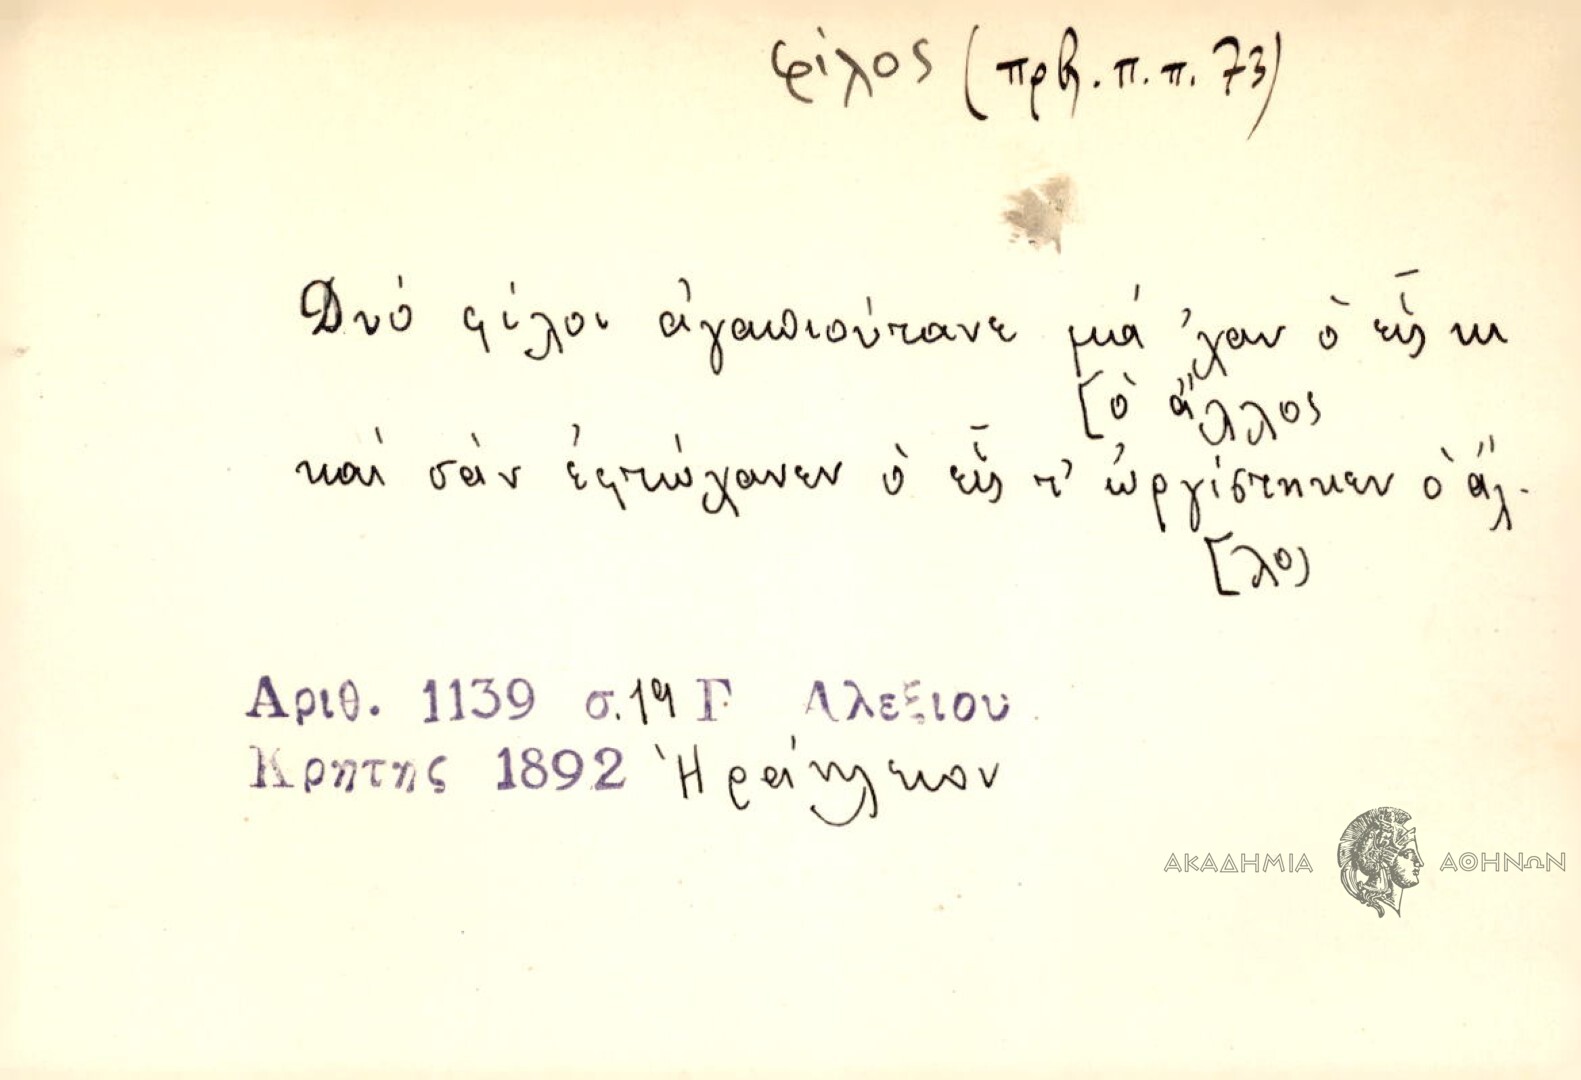 φίλος (πρβ. π. π. 73)
Δυό φίλοι ἀγαπιούτανε μιά 'χαν ὁ εἷς κι
[ὁ ἄλλος
καί σὰν ἐφτώχανεν ὁ εἷς τ' ὠργίστηκεν ὁ ἄλ-
[λος
Αριθ. 1139 σ. 19 Γ Αλεξιου
Κρητης 1892 Ἡράκλειον
ΑΚΑΔΗΜΙΑ ΑΘΗΝΩΝ